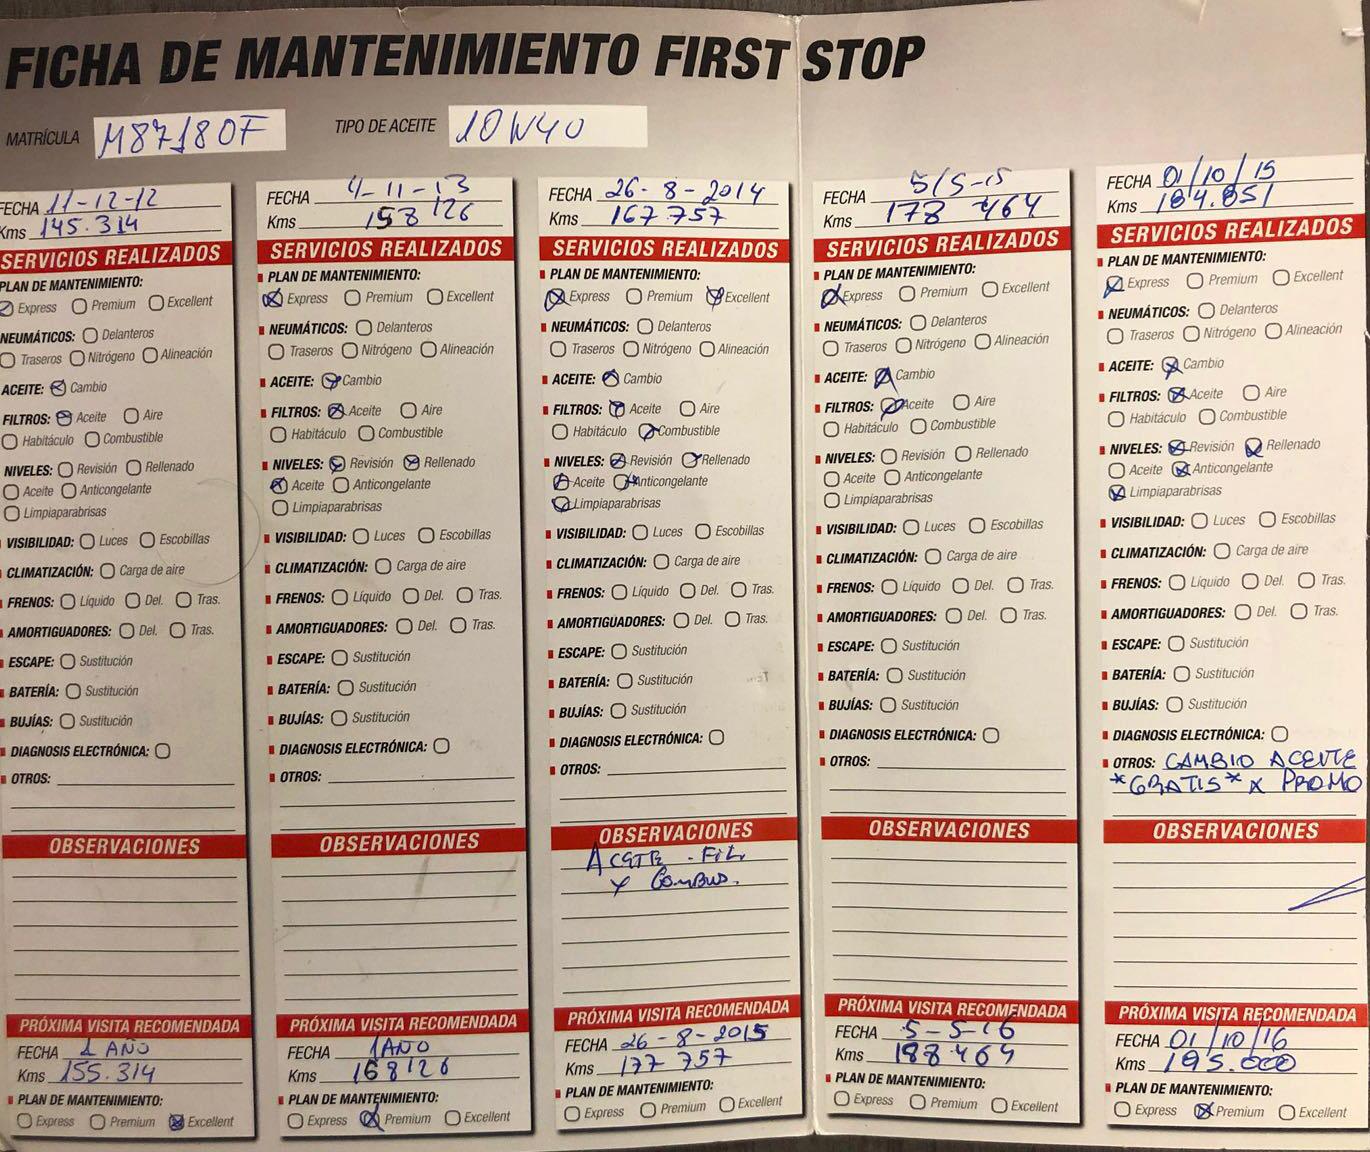 FICHA DE MANTENIMIENTO FIRST STOP
MATRÍCULA M87180F TIPO DE ACEITE 10W40
FECHA 11-12-12
Kms 145.314
SERVICIOS REALIZADOS
PLAN DE MANTENIMIENTO:
Express Premium Excellent
NEUMÁTICOS: Delanteros
Traseros Nitrógeno Alineación
ACEITE: Cambio
FILTROS: Aceite Aire
Habitáculo Combustible
NIVELES: Revisión Rellenado
Aceite Anticongelante
Limpiaparabrisas
VISIBILIDAD: Luces Escobillas
CLIMATIZACIÓN: Carga de aire
FRENOS: Líquido Del. Tras.
AMORTIGUADORES: Del. Tras.
ESCAPE: Sustitución
BATERÍA: Sustitución
BUJÍAS: Sustitución
DIAGNOSIS ELECTRÓNICA:
OTROS:
OBSERVACIONES
PRÓXIMA VISITA RECOMENDADA
FECHA 1 AÑO
Kms 155.314
PLAN DE MANTENIMIENTO:
Express Premium Excellent
FECHA 4-11-13
Kms 158 126
SERVICIOS REALIZADOS
PLAN DE MANTENIMIENTO:
Express Premium Excellent
NEUMÁTICOS: Delanteros
Traseros Nitrógeno Alineación
ACEITE: Cambio
FILTROS: Aceite Aire
Habitáculo Combustible
NIVELES: Revisión Rellenado
Aceite Anticongelante
Limpiaparabrisas
VISIBILIDAD: Luces Escobillas
CLIMATIZACIÓN: Carga de aire
FRENOS: Líquido Del. Tras.
AMORTIGUADORES: Del. Tras.
ESCAPE: Sustitución
BATERÍA: Sustitución
BUJÍAS: Sustitución
DIAGNOSIS ELECTRÓNICA:
OTROS:
OBSERVACIONES
PRÓXIMA VISITA RECOMENDADA
FECHA 1AÑO
Kms 168126
PLAN DE MANTENIMIENTO:
Express Premium Excellent
FECHA 26-8-2014
Kms 167.757
SERVICIOS REALIZADOS
PLAN DE MANTENIMIENTO:
Express Premium Excellent
NEUMÁTICOS: Delanteros
Traseros Nitrógeno Alineación
ACEITE: Cambio
FILTROS: Aceite Aire
Habitáculo Combustible
NIVELES: Revisión Rellenado
Aceite Anticongelante
Limpiaparabrisas
VISIBILIDAD: Luces Escobillas
CLIMATIZACIÓN: Carga de aire
FRENOS: Líquido Del. Tras.
AMORTIGUADORES: Del. Tras.
ESCAPE: Sustitución
BATERÍA: Sustitución
BUJÍAS: Sustitución
DIAGNOSIS ELECTRÓNICA:
OTROS:
OBSERVACIONES
- Fil.
y Combus.
PRÓXIMA VISITA RECOMENDADA
FECHA 26-8-2015
Kms 177 757
PLAN DE MANTENIMIENTO:
Express Premium Excellent
FECHA 5/5-15
Kms 178 464
SERVICIOS REALIZADOS
PLAN DE MANTENIMIENTO:
Express Premium Excellent
NEUMÁTICOS: Delanteros
Traseros Nitrógeno Alineación
ACEITE: Cambio
FILTROS: Aceite Aire
Habitáculo Combustible
NIVELES: Revisión Rellenado
Aceite Anticongelante
Limpiaparabrisas
VISIBILIDAD: Luces Escobillas
CLIMATIZACIÓN: Carga de aire
FRENOS: Líquido Del. Tras.
AMORTIGUADORES: Del. Tras.
ESCAPE: Sustitución
BATERÍA: Sustitución
BUJÍAS: Sustitución
DIAGNOSIS ELECTRÓNICA:
OTROS:
OBSERVACIONES
PRÓXIMA VISITA RECOMENDADA
FECHA 5-5-16
Kms 188.464
PLAN DE MANTENIMIENTO:
Express Premium Excellent
FECHA 01/10/15
Kms 184.851
SERVICIOS REALIZADOS
PLAN DE MANTENIMIENTO:
Express Premium Excellent
NEUMÁTICOS: Delanteros
Traseros Nitrógeno Alineación
ACEITE: Cambio
FILTROS: Aceite Aire
Habitáculo Combustible
NIVELES: Revisión Rellenado
Aceite Anticongelante
Limpiaparabrisas
VISIBILIDAD: Luces Escobillas
CLIMATIZACIÓN: Carga de aire
FRENOS: Líquido Del. Tras.
AMORTIGUADORES: Del. Tras.
ESCAPE: Sustitución
BATERÍA: Sustitución
BUJÍAS: Sustitución
DIAGNOSIS ELECTRÓNICA:
OTROS: CAMBIO ACEITE
*GRATIS* X PROMO
OBSERVACIONES
PRÓXIMA VISITA RECOMENDADA
FECHA 01/10/16
Kms 195.000
PLAN DE MANTENIMIENTO:
Express Premium Excellent